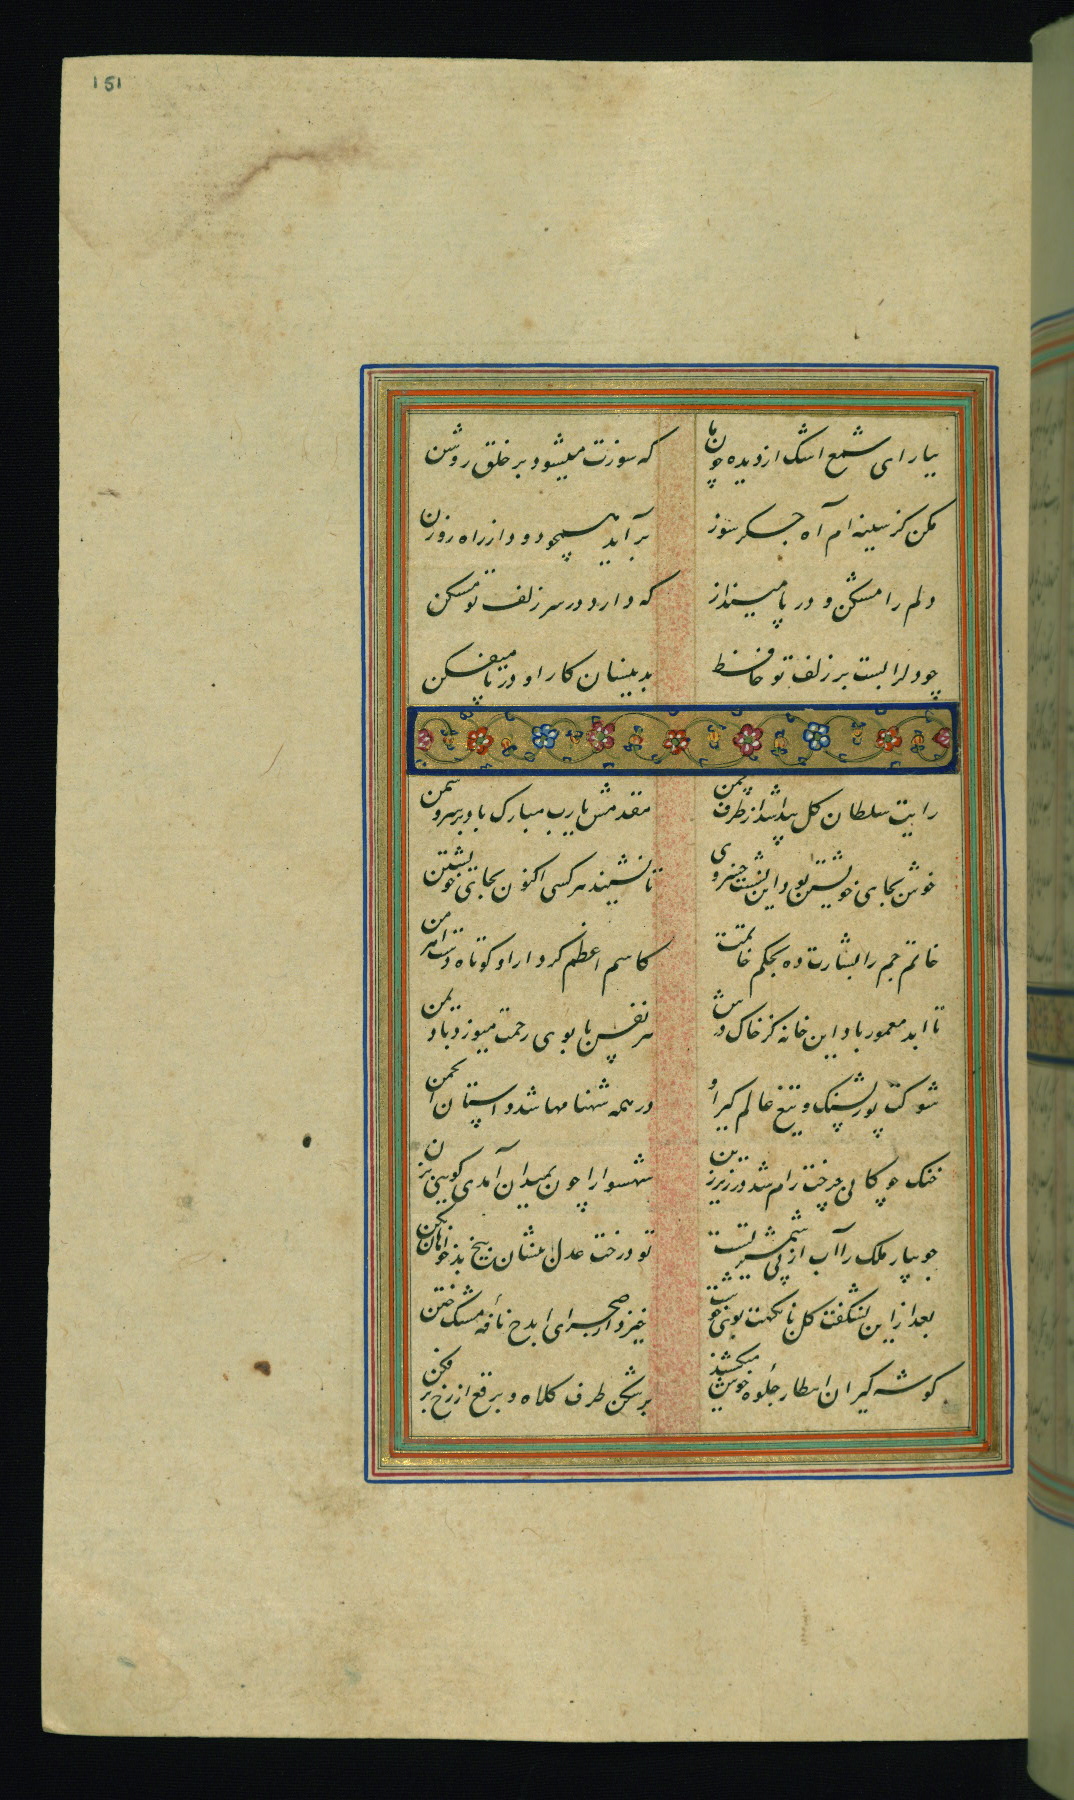 151
ببار ای شمع اشک از دیده چون ما
که سوزت میشود بر خلق روشن
مکن کز سینه ام آه جکر سوز
برآید همچو دود از راه روزن
دلم را مشکن و در پا مینداز
که دارد در سر زلف تو مسکن
چو دل را بست بر زلف تو حافظ
بدینسان کار او در پا میفکن
رایت سلطان کل پیدا شد از طرف چمن
مقدمش یا رب مبارک باد بر سرو سمن
خوش بجای خویشتن بود این نشست خسروی
تا نشیند هر کسی اکنون بجای خویشتن
خاتم جم را بشارت ده بحکم خاتمت
کاسم اعظم کرد از او کوتاه دست اهرمن
تا ابد معمور باد این خانه کز خاک درش
هر نفس با بوی رحمت میوزد باد یمن
شوکت پور پشنک و تیغ عالم کیر او
در همه شهنامها شد داستان انجمن
خنک چوکانی چرخت رام شد در زیر زین
شهسوارا چون بمیدان آمدی کویی بزن
جویبار ملک را آب از پی شمشیر تست
تو درخت عدل بنشان بیخ بدخواهان بکن
بعد از این نشکفت کل با نکهت بوی خوشت
خیزد از صحرای ایدج نافه مشک ختن
کوشه کیران انتظار جلوه خویش میکشند
برشکن طرف کلاه و برقع از رخ برفکن